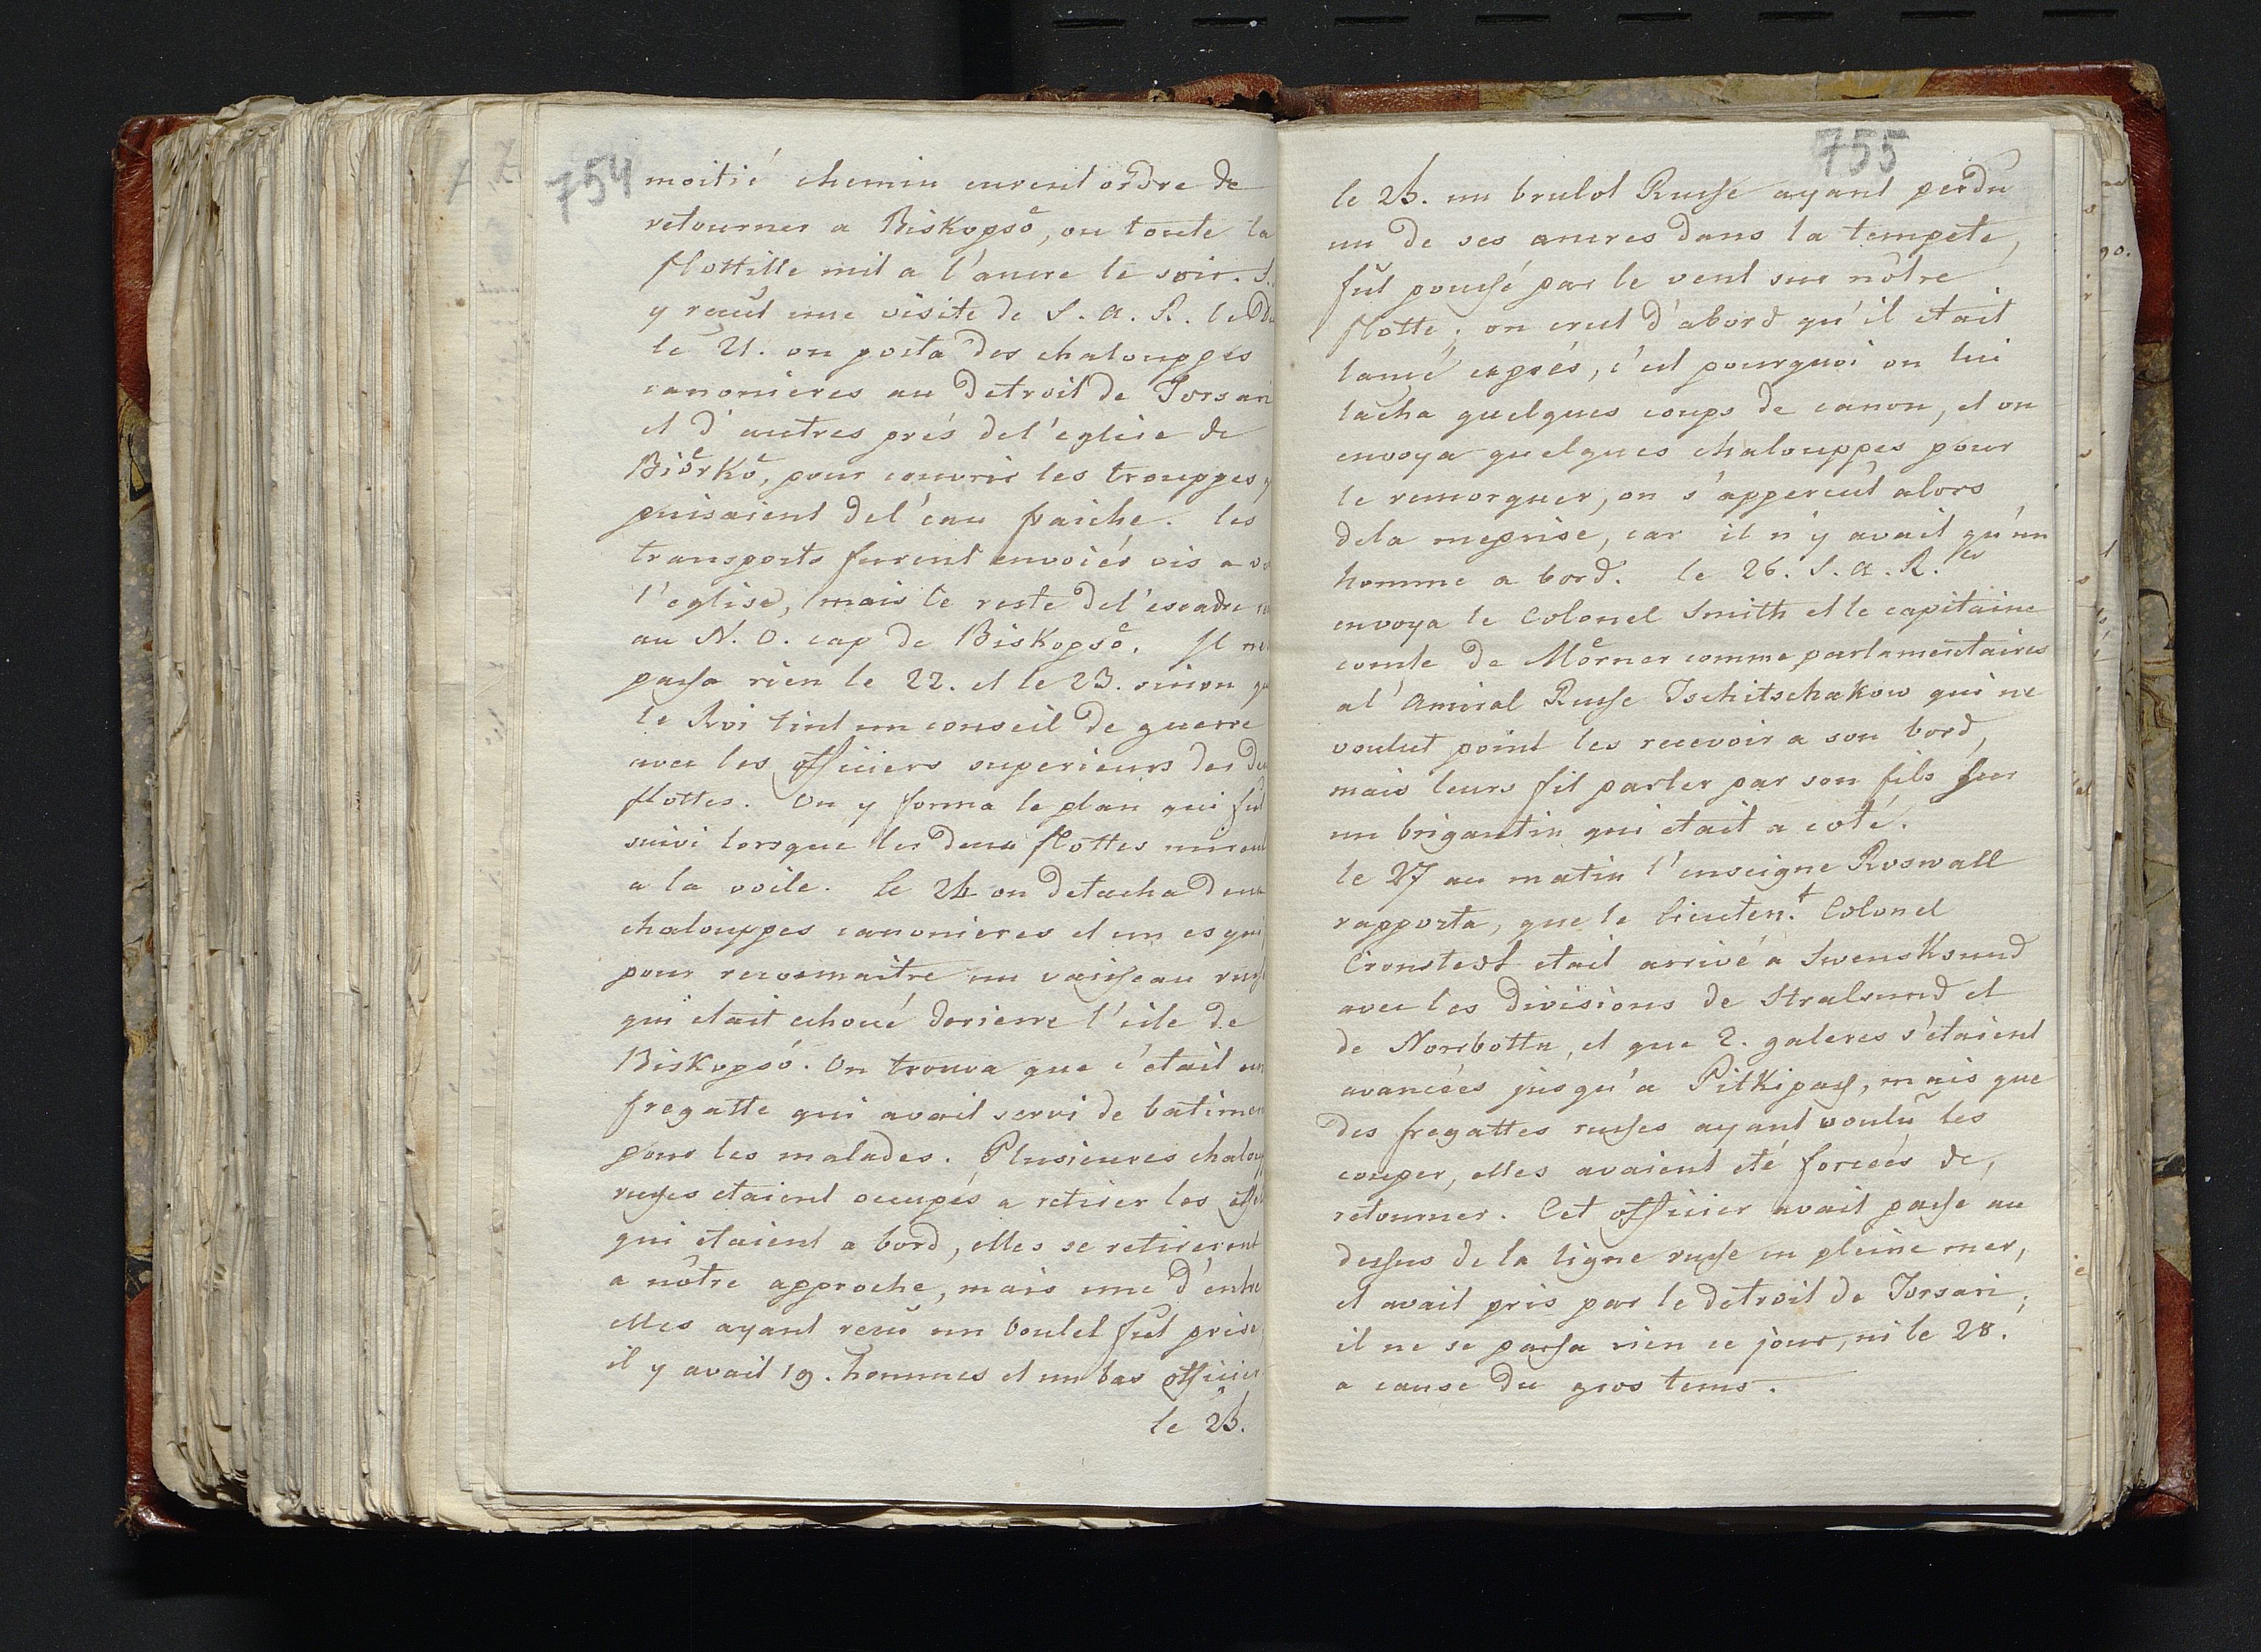 754
moitié chemin eurent ordre de
retourner a Biskopsö, ou toute la
flottille mit a l'ancre le soir. S.
y recut une visite de S. A. R. le Du
le 21. on posta des chalouppes
canonieres au Detroit de Torsari
et d'autres prés de l'eglise de
Biörkö, pour couvrir les trouppes
puisaient del'eau fraiche. les
transports furent envoiés vis a vi
l'eglise, mais le reste del'escadre
au N. O. cap de Biskopsö. Il ne
passa rien le 22. et le 23. sinon qu
le Roi tint un conseil de guerre
avec les officiers superieurs des deu
flottes. On y forma le plan qui fut
suivi lorsque les deux flottes mirent
a la voile. le 24 on detacha deux
chalouppes canonieres et un esqui
pour reconnaitre un vaisseau russ
qui etait echoué derierre l'isle de
Biskopsö. On trouva que c'etait un
fregatte qui avait servi de batimen
pour les malades. Plusieures chalou
russes etaient occupés a retirer les effet
qui etaient a bord, elles se retirerent
a nôtre approche, mais une d'entre
elles ayant recu un boulet fut prise,
il y avait 19. hommes et un bas officier
le 25.
755
le 25. un brulot Russe ayant perdu
un de ses ancres dans la tempete,
fut poussé par le vent sur nôtre
flotte; on crut d'abord qu'il etait
lancé exprés, c'est pourquoi on lui
lacha quelques coups de canon, et on
envoya quelques chalouppes pour
le remorquer, on s'apperçut alors
dela meprise, car il n'y avait qu'un
homme a bord. le 26. S. A. R.
envoya le Colonel Smith et le capitaine
comte de Mörner comme parlamentaires
al'Amiral Russe Tschitschakow qui ne
voulut point les recevoir a son bord,
mais leurs fit parler par son fils sur
un brigantin qui etait a coté.
le 27 au matin l'enseigne Roswall
rapporta, que le lieuten.t Colonel
Cronstedt etait arrivé a Swensksund
avec les divisions de Stralsund et
de Norrbottn, et que 2. galeres s'etaient
avancées jusqu'a Pitkipass, mais que
des fregattes russes ayant voulu les
couper, elles avaient eté forcées de,
retourner. Cet officier avait passe au
dessus de la ligne russe en pleine mer,
et avait pris par le detroit de Torsari;
il ne se passa rien ce jour, ni le 28.
a cause du gros tems.